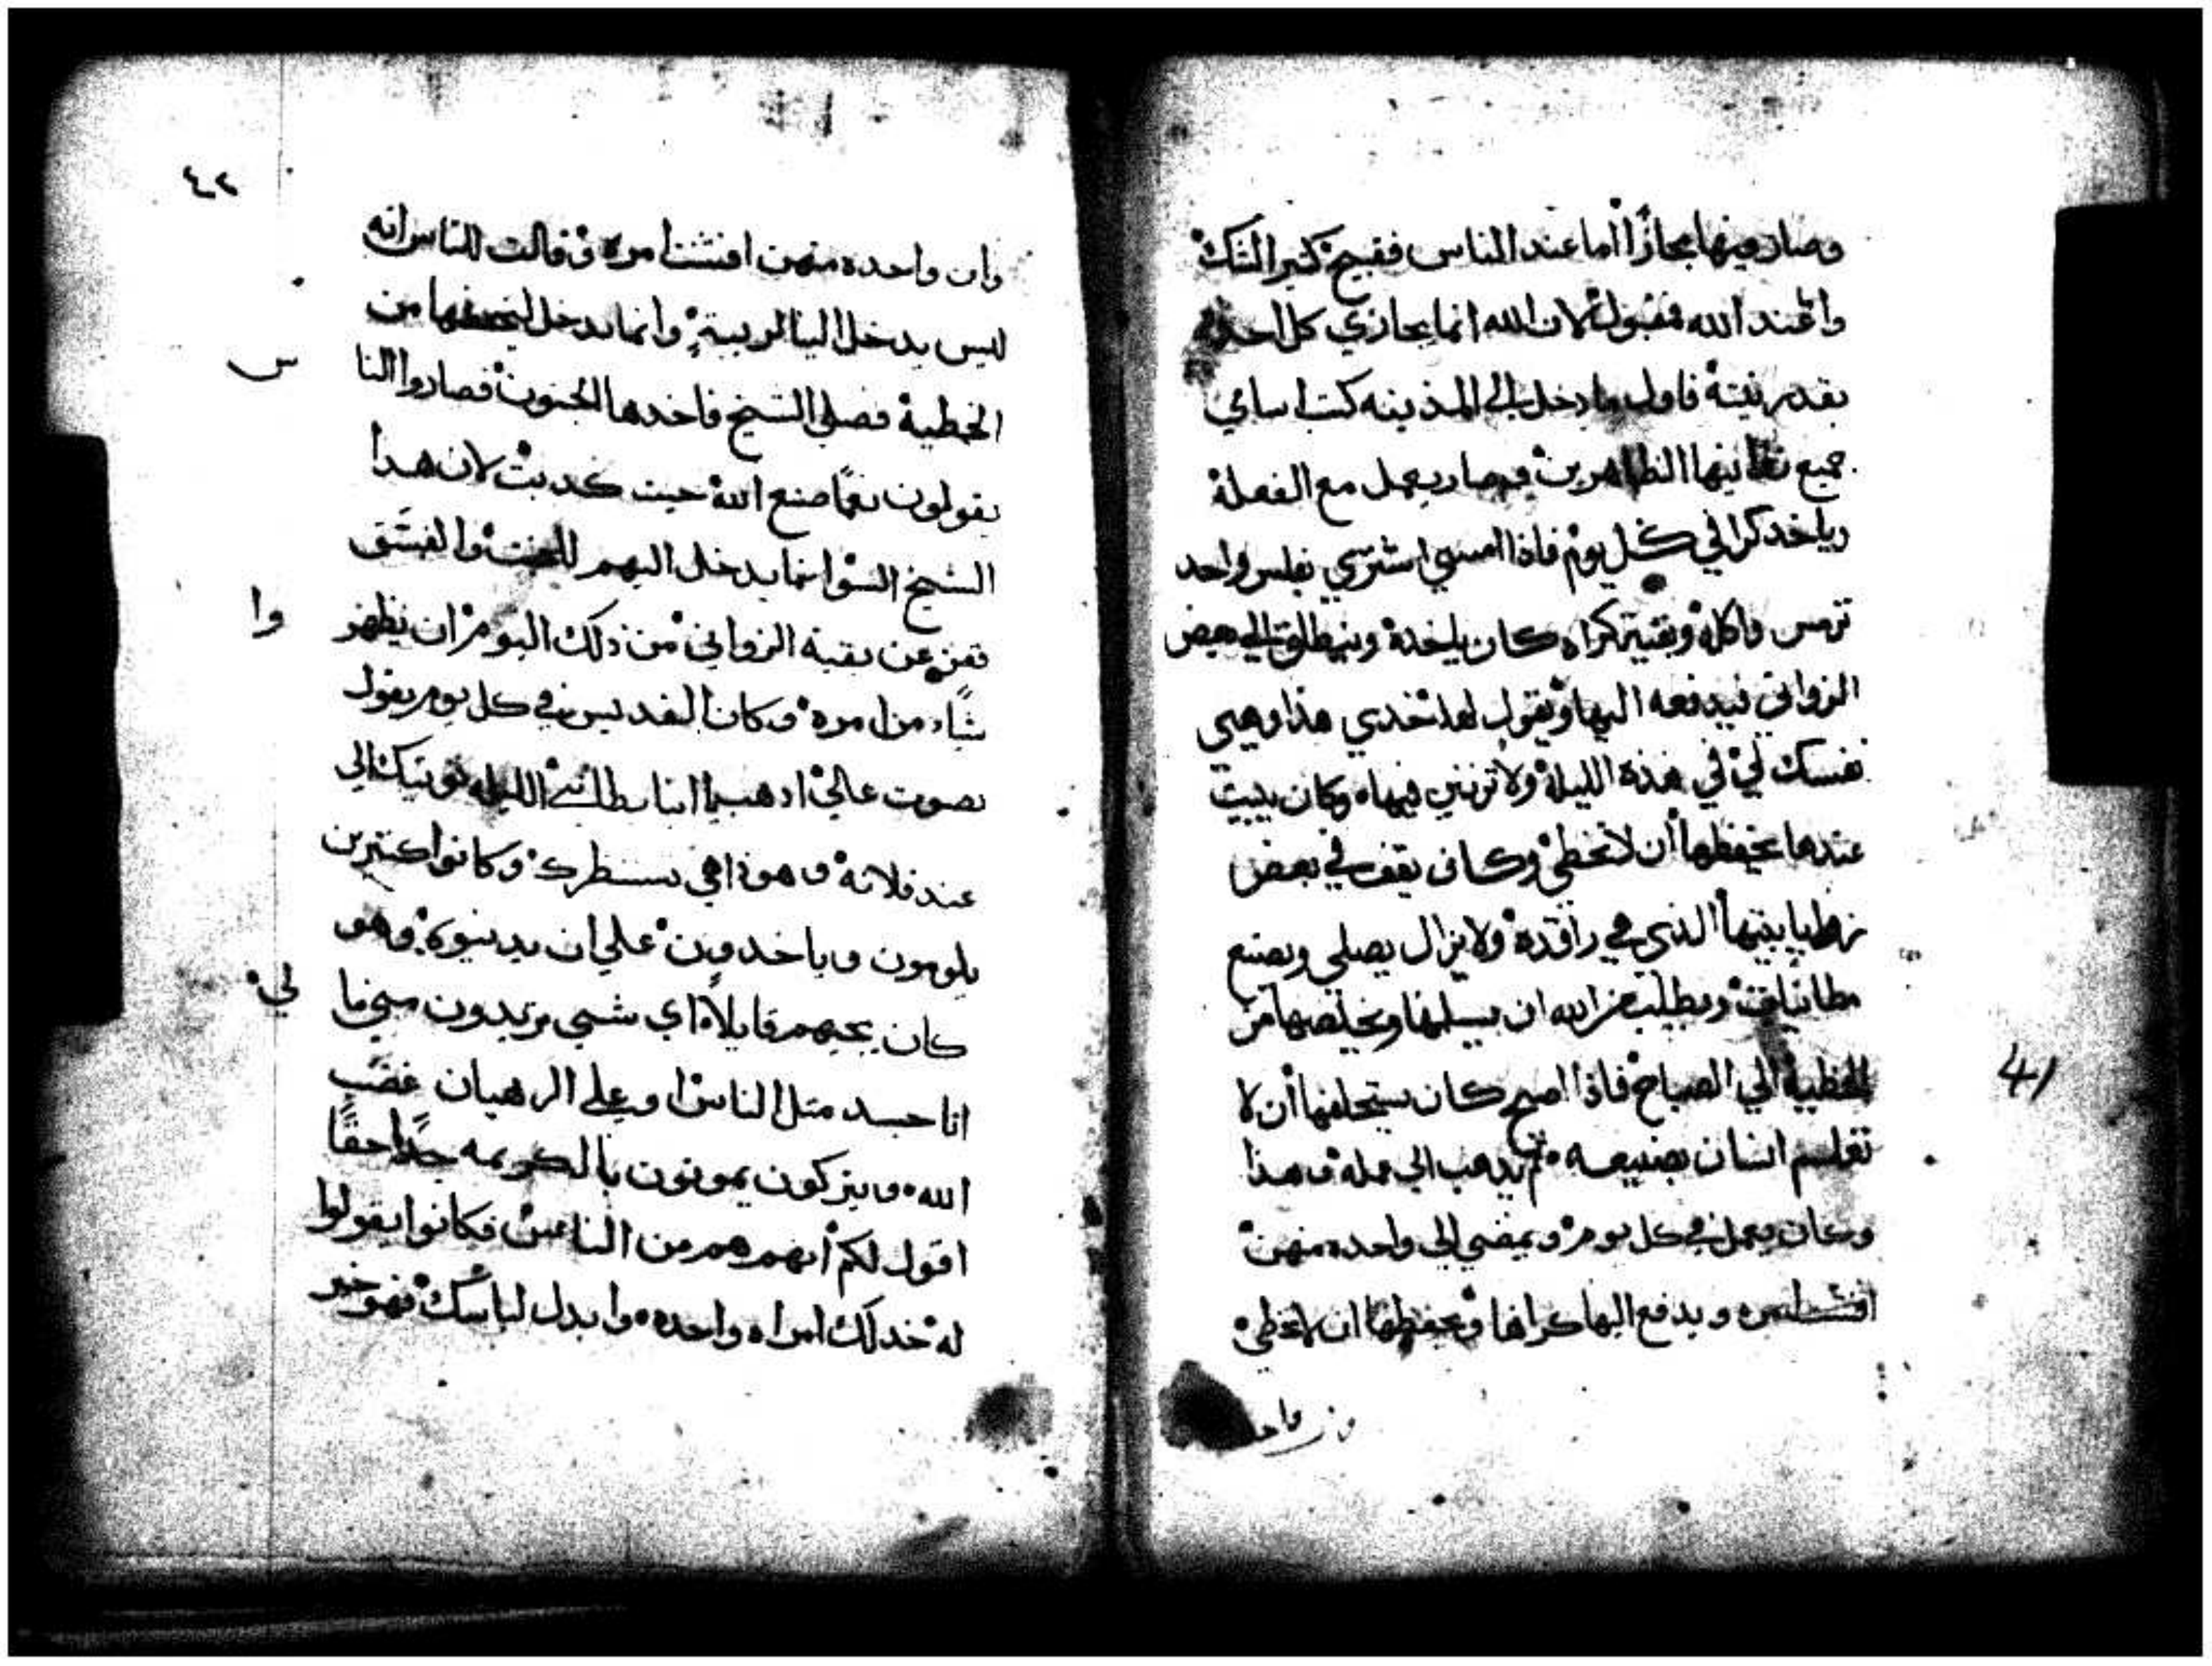 وصار فيها مجازاً أما عند الناس فقبيح كثير الشك
واما عند الله فمقبول لان الله انما يجازي كل احد
بقدر نيته فاول ما دخل الي المدينه كتب اسامي
جميع زوانيها الظاهرين وصار يعمل مع الفعلة
وياخد كرا في كل يوم فاذا امسي اشتري بفلس واحد
ترمس واكله وبقية كراه كان ياخده وينطلق الي بعض
الزواني فيدفعه اليها ويقول لها خدي هذا وهبي
نفسك لي في هذه الليلة ولا تزني فيها وكان يبيت
عندها يحفظها أن لا تخطي وكان يقف في بعض
زوايا بيتها الذي هي راقدة ولا يزال يصلي ويصنع
مطانيات ويطلب من الله ان يسلمها ويخلصها من
الخطية الي الصباح فاذا اصبح كان يستحلفها أن لا
تعلم انسان بصنيعه ثم يذهب الي عمله وهذا
وكان يعمل في كل يوم ويمضي الي واحده منهن
افتشنا مره ويدفع اليها كراها ويحفظها ان لا تخطي
وان واحده منهن افتشنا مره فقالت للناس انه
ليس يدخل الينا لريبة وانما يدخل ليحفظها من
الخطية فصلي الشيخ فاخدها الجنون فصاروا النا
س
يقولون نعمًا صنع الله حيت كدبت لان هدا
الشيخ السو انما يدخل اليهم للخبث والفسق
ففزعن بقية الزواني من ذلك اليوم ان يظهر
وا
شاء من امره وكان القديس في كل يوم يقول
بصوت عالي ادهب يا انبا بطال الليله نوبتك الي
عند فلانه وهوذا هي تستطرك وكانوا كتيرين
يلومون وياخدون علي ان يدينوه وهو
كان يجيبهم قايلا اي شي تريدون مني ما
لي
انا جسد متل الناس او علي الرهبان غضب
الله ويتركون يموتون بالكريمه جدًا حقًا
اقول لكم أنهم هم من الناس فكانوا يقولوا
له خد لك امراه واحده وابدل لباسك فهو خير
٤٢
41